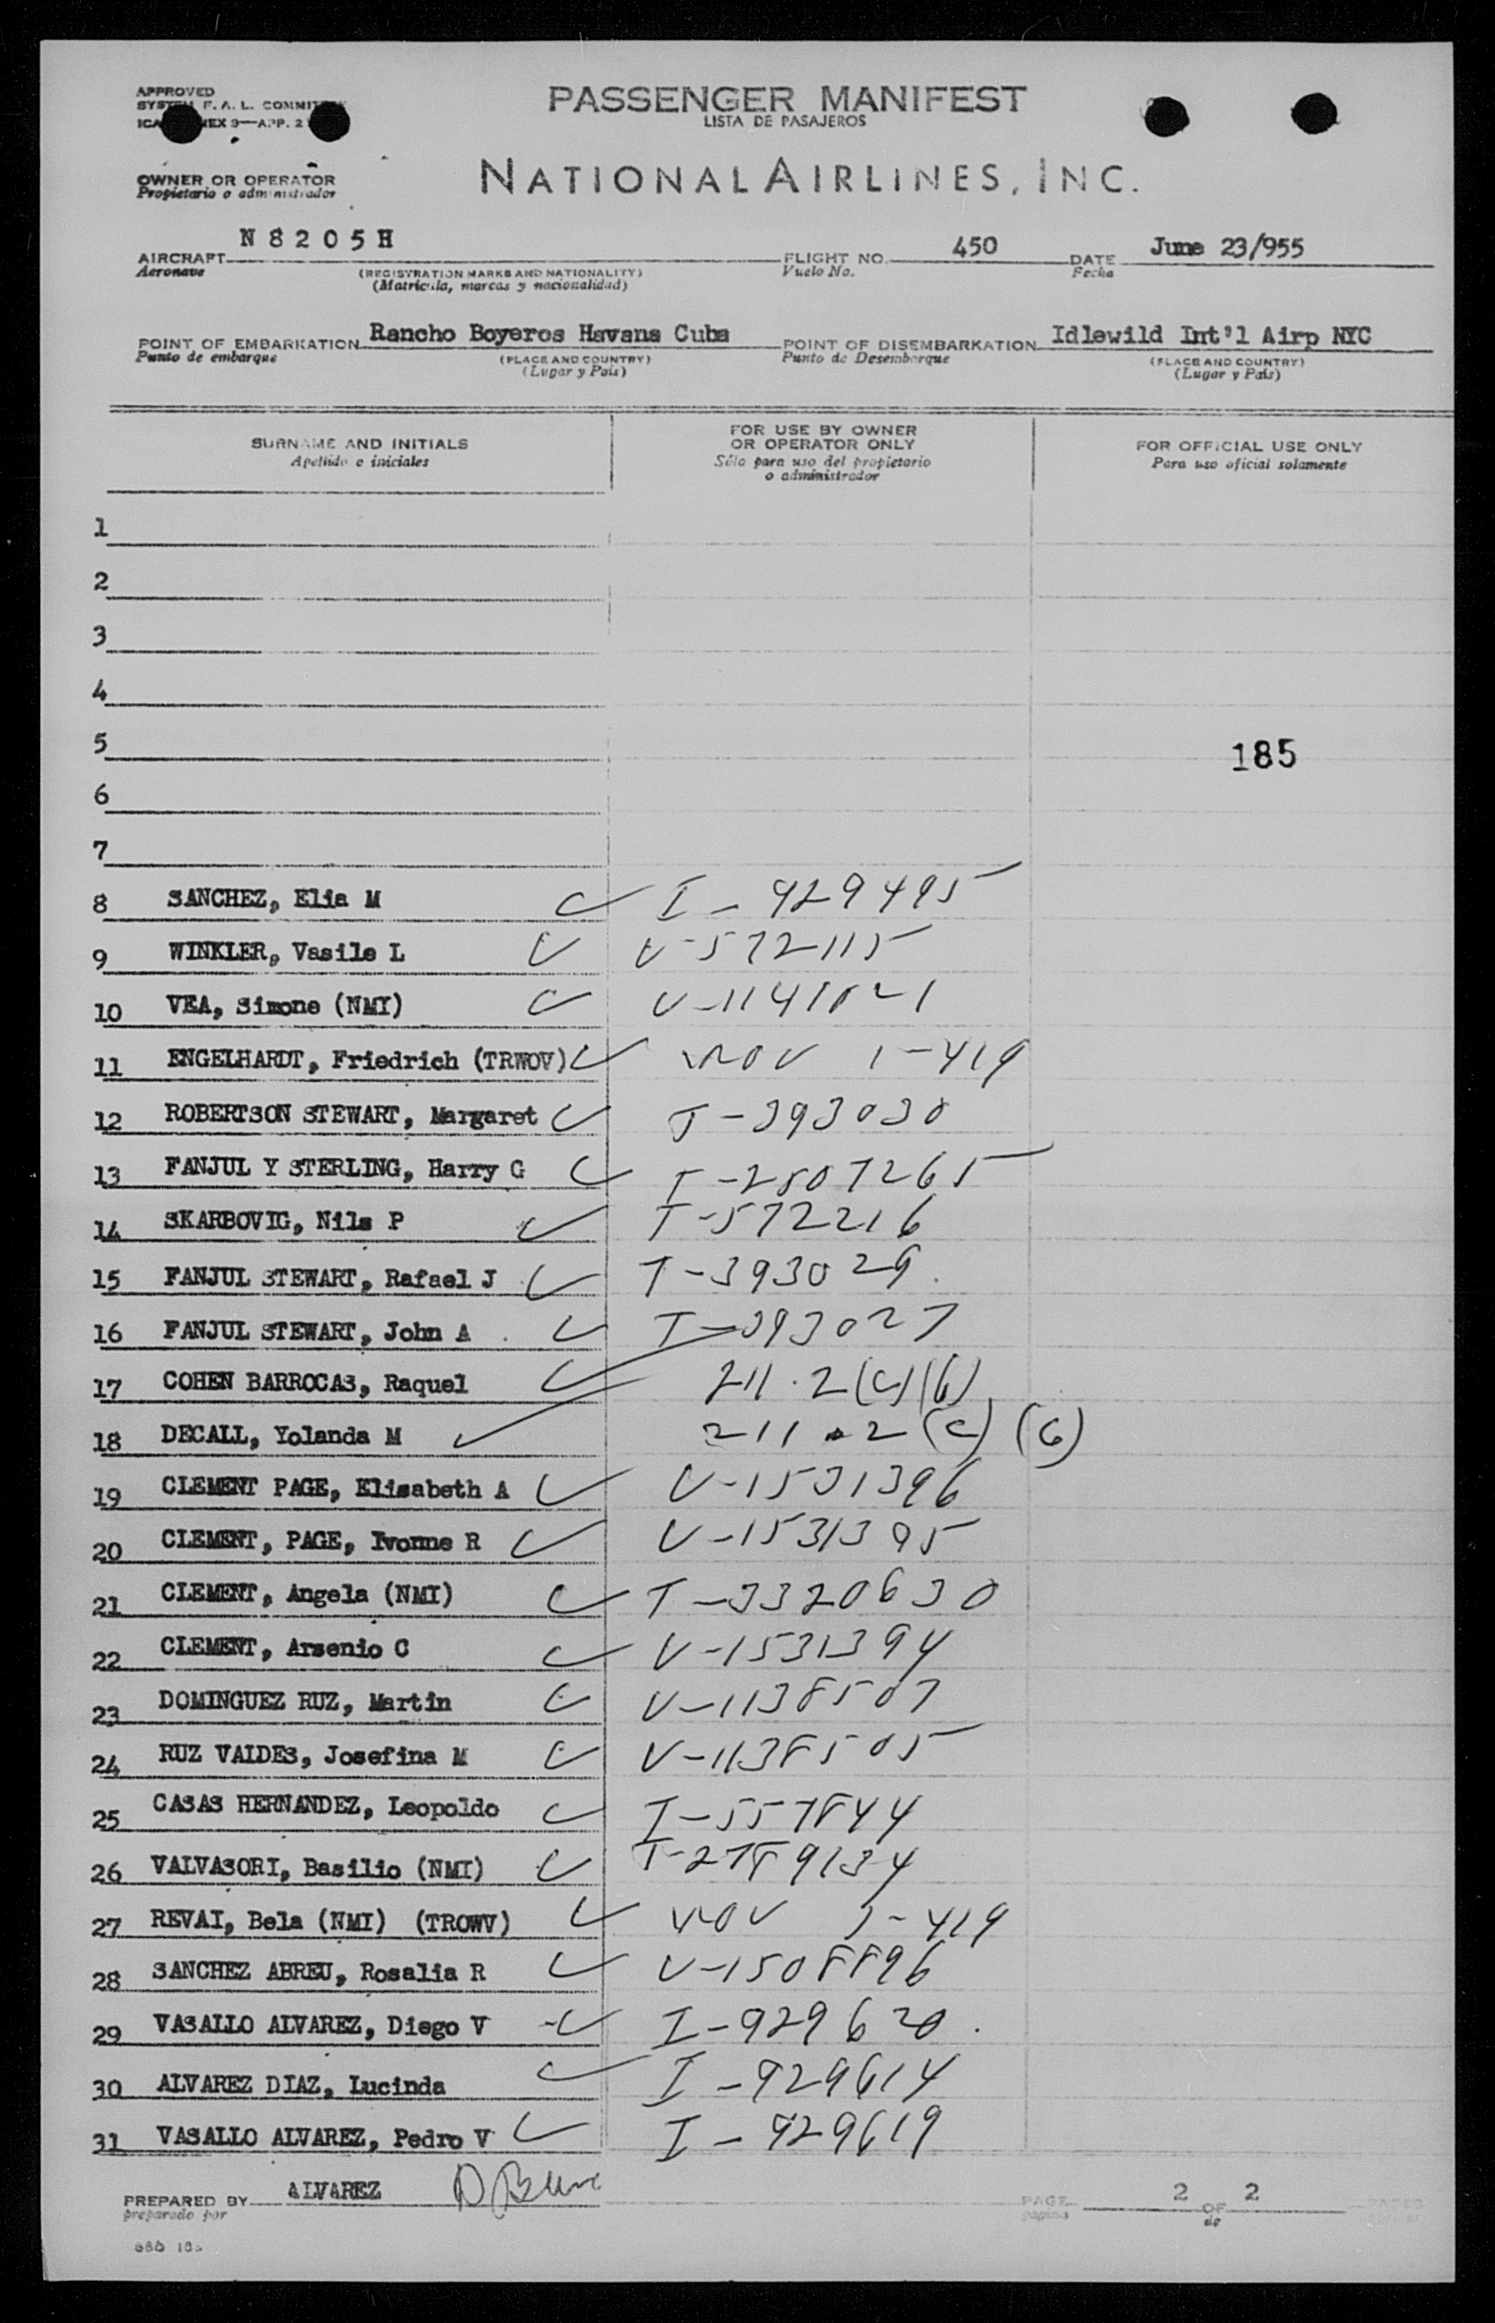 APPROVED
PASSENGER MANIFEST
LISTA DE PASAJEROS
OWNER OR OPERATOR
Propietario o administrador
NATIONAL AIRLINES, INC.
AIRCRAFT N 8 2 0 5 H FLIGHT NO. 450 DATE June 23/955
Aeronave (REGISTRATION MARKS AND NATIONALITY) Vuelo No. Fecha
(Matrícula, marcas y nacionalidad)
POINT OF EMBARKATION Rancho Boyeros Havana Cuba POINT OF DISEMBARKATION Idlewild Int'l Airp NYC
Punto de embarque (PLACE AND COUNTRY) Punto de Desembarque (PLACE AND COUNTRY)
(Lugar y País) (Lugar y País)
SURNAME AND INITIALS FOR USE BY OWNER OR OPERATOR ONLY FOR OFFICIAL USE ONLY
Apellido e iniciales Sólo para uso del propietario o administrador Para uso oficial solamente
1
2
3
4
5 185
6
7
8 SANCHEZ, Elia M I-929495
9 WINKLER, Vasile L V-572115
10 VEA, Simone (NMI) V-1141021
11 ENGELHARDT, Friedrich (TRWOV) WOV 1-419
12 ROBERTSON STEWART, Margaret T-393030
13 FANJUL Y STERLING, Harry G T-2507265
14 SKARBOVIG, Nils P T-572216
15 FANJUL STEWART, Rafael J T-393029
16 FANJUL STEWART, John A T-393027
17 COHEN BARROCAS, Raquel 211.2(c)(6)
18 DECALL, Yolanda M 211.2(c)(6)
19 CLEMENT PAGE, Elisabeth A V-1531396
20 CLEMENT, PAGE, Ivonne R V-1531395
21 CLEMENT, Angela (NMI) T-3320630
22 CLEMENT, Arsenio C V-1531394
23 DOMINGUEZ RUZ, Martin V-1138507
24 RUZ VALDES, Josefina M V-1138505
25 CASAS HERNANDEZ, Leopoldo I-557844
26 VALVASORI, Basilio (NMI) T-2789134
27 REVAI, Bela (NMI) (TROWV) WOV 1-419
28 SANCHEZ ABREU, Rosalia R V-1508896
29 VASALLO ALVAREZ, Diego V I-929620
30 ALVAREZ DIAZ, Lucinda I-929614
31 VASALLO ALVAREZ, Pedro V I-929619
PREPARED BY ALVAREZ PAGE 2 OF 2 PAGES
preparado por página de